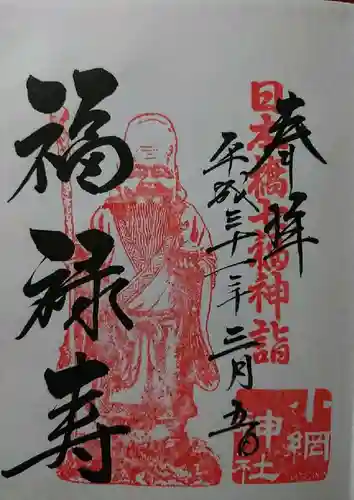 奉拝
日本橋七福神詣
平成三十一年三月五日
福禄寿
小網神社